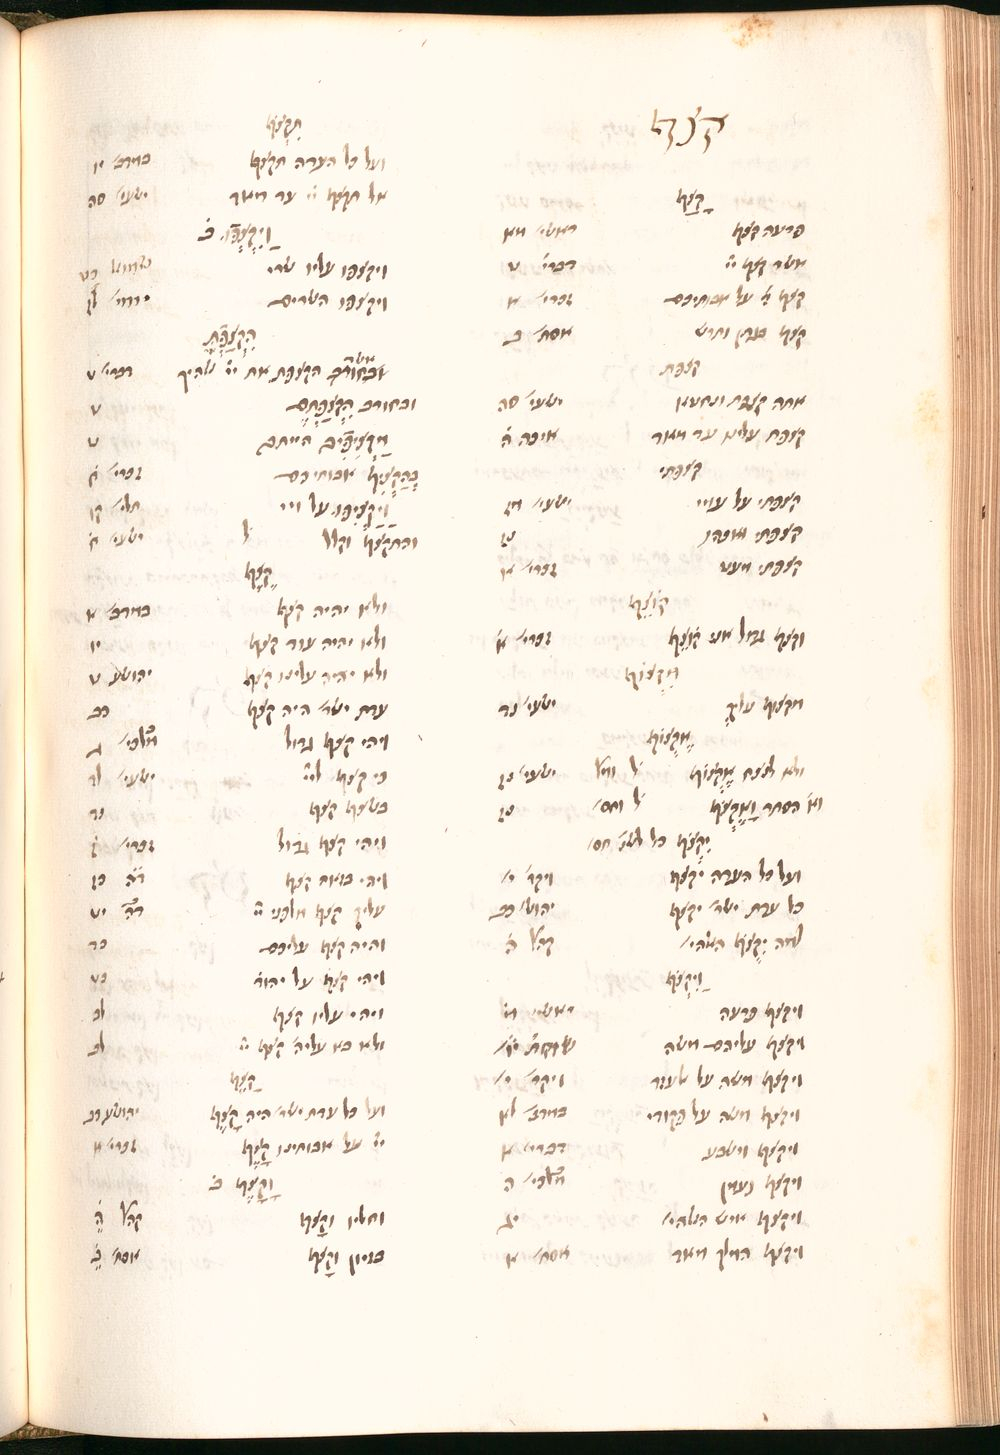 קצף
קָצַף
פרעה קצף ראשי׳ מא
אשר קצף יי׳ דברי׳ ט
קצף יי׳ על אבותיכם זכרי׳ א
קצף בגתן ותרש אסת׳ ב
קצפת
אתה קצפת ונחטא ישעי׳ סה
קצפת עלינו עד מאד איכה ה
קצפתי
קצפתי על עמי ישעי׳ מז
קצפתי ואכהו נז
קצפתי מעט זכרי׳ א
קוֹצֵף
וקצף גדול אני קֹוצֵף זכרי׳ א
מִקְצוֹף
מקצוף עליך ישעי׳ נד
אֶקְצוֹף
ולא לנצח אֶקְצוֹף ישעי׳ נז
הסתר וְאֶקְצֹף נז
יִקְצֹף
ועל כל העדה יקצף ויקר׳ י
כל עדת ישר׳ יקצף יהוש׳ כב
למה יִקְצֹף האלהי׳ קהל׳ ה
וַיִקְצֹף
ויקצף פרעה ראשי׳ מ
ויקצף עליהם משה שמות יו
ויקצף משה על אלעזר ויקר׳ י
ויקצף משה על פקודי במדב׳ לא
ויקצף וישבע דברי׳ א
ויקצף נעמן מלכי׳ ה
ויקצף איש האלהי׳ יג
ויקצף המלך מאד אסת׳ א
תִקְצֹף
ועל כל העדה תקצף במדב׳ יו
אל תקצף יי׳ עד מאד ישעי׳ סה
וַיִקְצְפוּ ב
ויקצפו עליו שרי שמואל כט
ויקצפו השרים ירמי׳ לז
הִקְצַפְתָּ
אשר הקצפת את יי׳ אלהיך דברי׳ ט
ובחורב הִקְצַפְתֶּם ט
מַקְצִפִים הייתם ט
בְּהַקְצִיף אבותיכם זכרי׳ ח
וַיַקְצִיפוּ על מי תלי׳ קו
והתקצף וקלל ישעי׳ ח
קֶצֶף
ולא יהיה קצף במדב׳ א
ולא יהיה עוד קצף יו
ולא יהיה עלינו קצף יהושע ט
עדת ישר׳ היה קצף כב
ויהי קצף גדול מלכי׳ ג
כי קצף ליי׳ ישעי׳ לד
בשצף קצף נד
ויהי קצף גדול זכרי׳ ז
ויהי בזאת קצף ד״ה כז
עליך קצף מלפני יי׳ ד״ה יט
והיה קצף עליכם כד
ויהי קצף על יהוד׳ כט
ויהי עליו קצף לב
ולא בא עליה׳ קצף יי׳ לב
קָצֶף
ועל כל עדת ישר׳ היה קָצֶף יהושע כב
יי׳ על אבותיכו קָצֶף זכרי׳ א
וָקָצֶף ב
וחליו וקצף קהל׳ ה
בזיון וקצף אסת׳ א